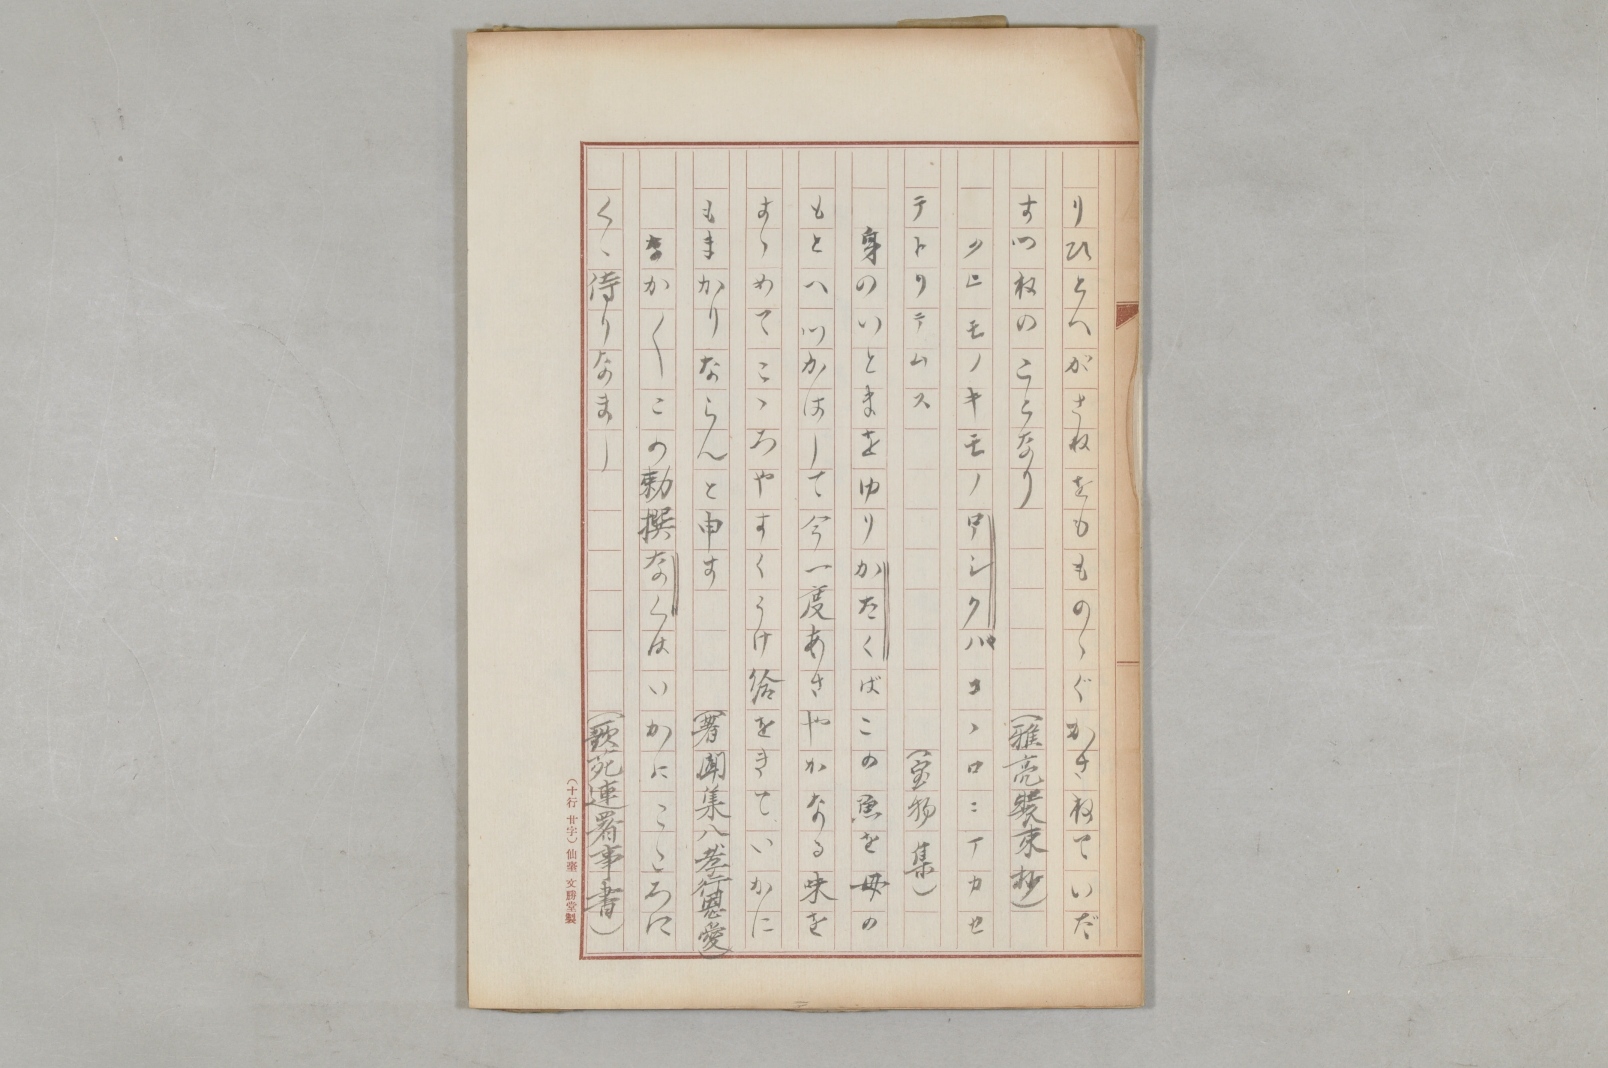 りひとへがさねをももの〻ぐかさねていだ
すつねのことなり　（雅亮装束抄）
クヒモノキモノワシクハコヽロニアカセ
テトリテムス　（宝物集）
身のいとまをゆりかたくばこの魚を母の
もとへつかはして今一度あさやかなる味を
すゝめてこゝろやすくうけ給をきていかに
もまかりならんと申す　（著聞集八孝行恩愛）
なか〳〵この勅撰なくはいかにこころに
くゝ侍りなまし　（歌苑連署事書）
（十行 廿字）仙臺 文勝堂製